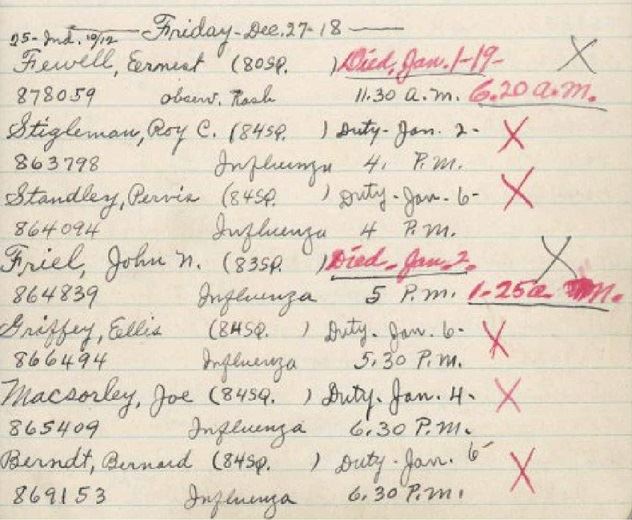 25-Ind. 10/12 Friday-Dec. 27-18
Fewell, Eernest (80SP. ) Died, Jan. 1-19- X
878059 observ. Rash 11.30 A.M. 6.20 a.m.
Stigleman, Roy C. (84SP. ) Duty-Jan. 2- X
863798 Influenza 4. P.M.
Standley, Pervis (84SP. ) Duty-Jan. 6- X
864094 Influenza 4 P.M.
Friel, John N. (83SP. ) Died, Jan. 2. X
864839 Influenza 5 P.M. 1-25a m.
Griffey, Ellis (84SP. ) Duty-Jan. 6- X
866494 Influenza 5.30 P.M.
Macsorley, Joe (84SP. ) Duty-Jan. 4- X
865409 Influenza 6.30 P.M.
Berndt, Bernard (84SP. ) Duty-Jan. 6- X
869153 Influenza 6.30 P.M.